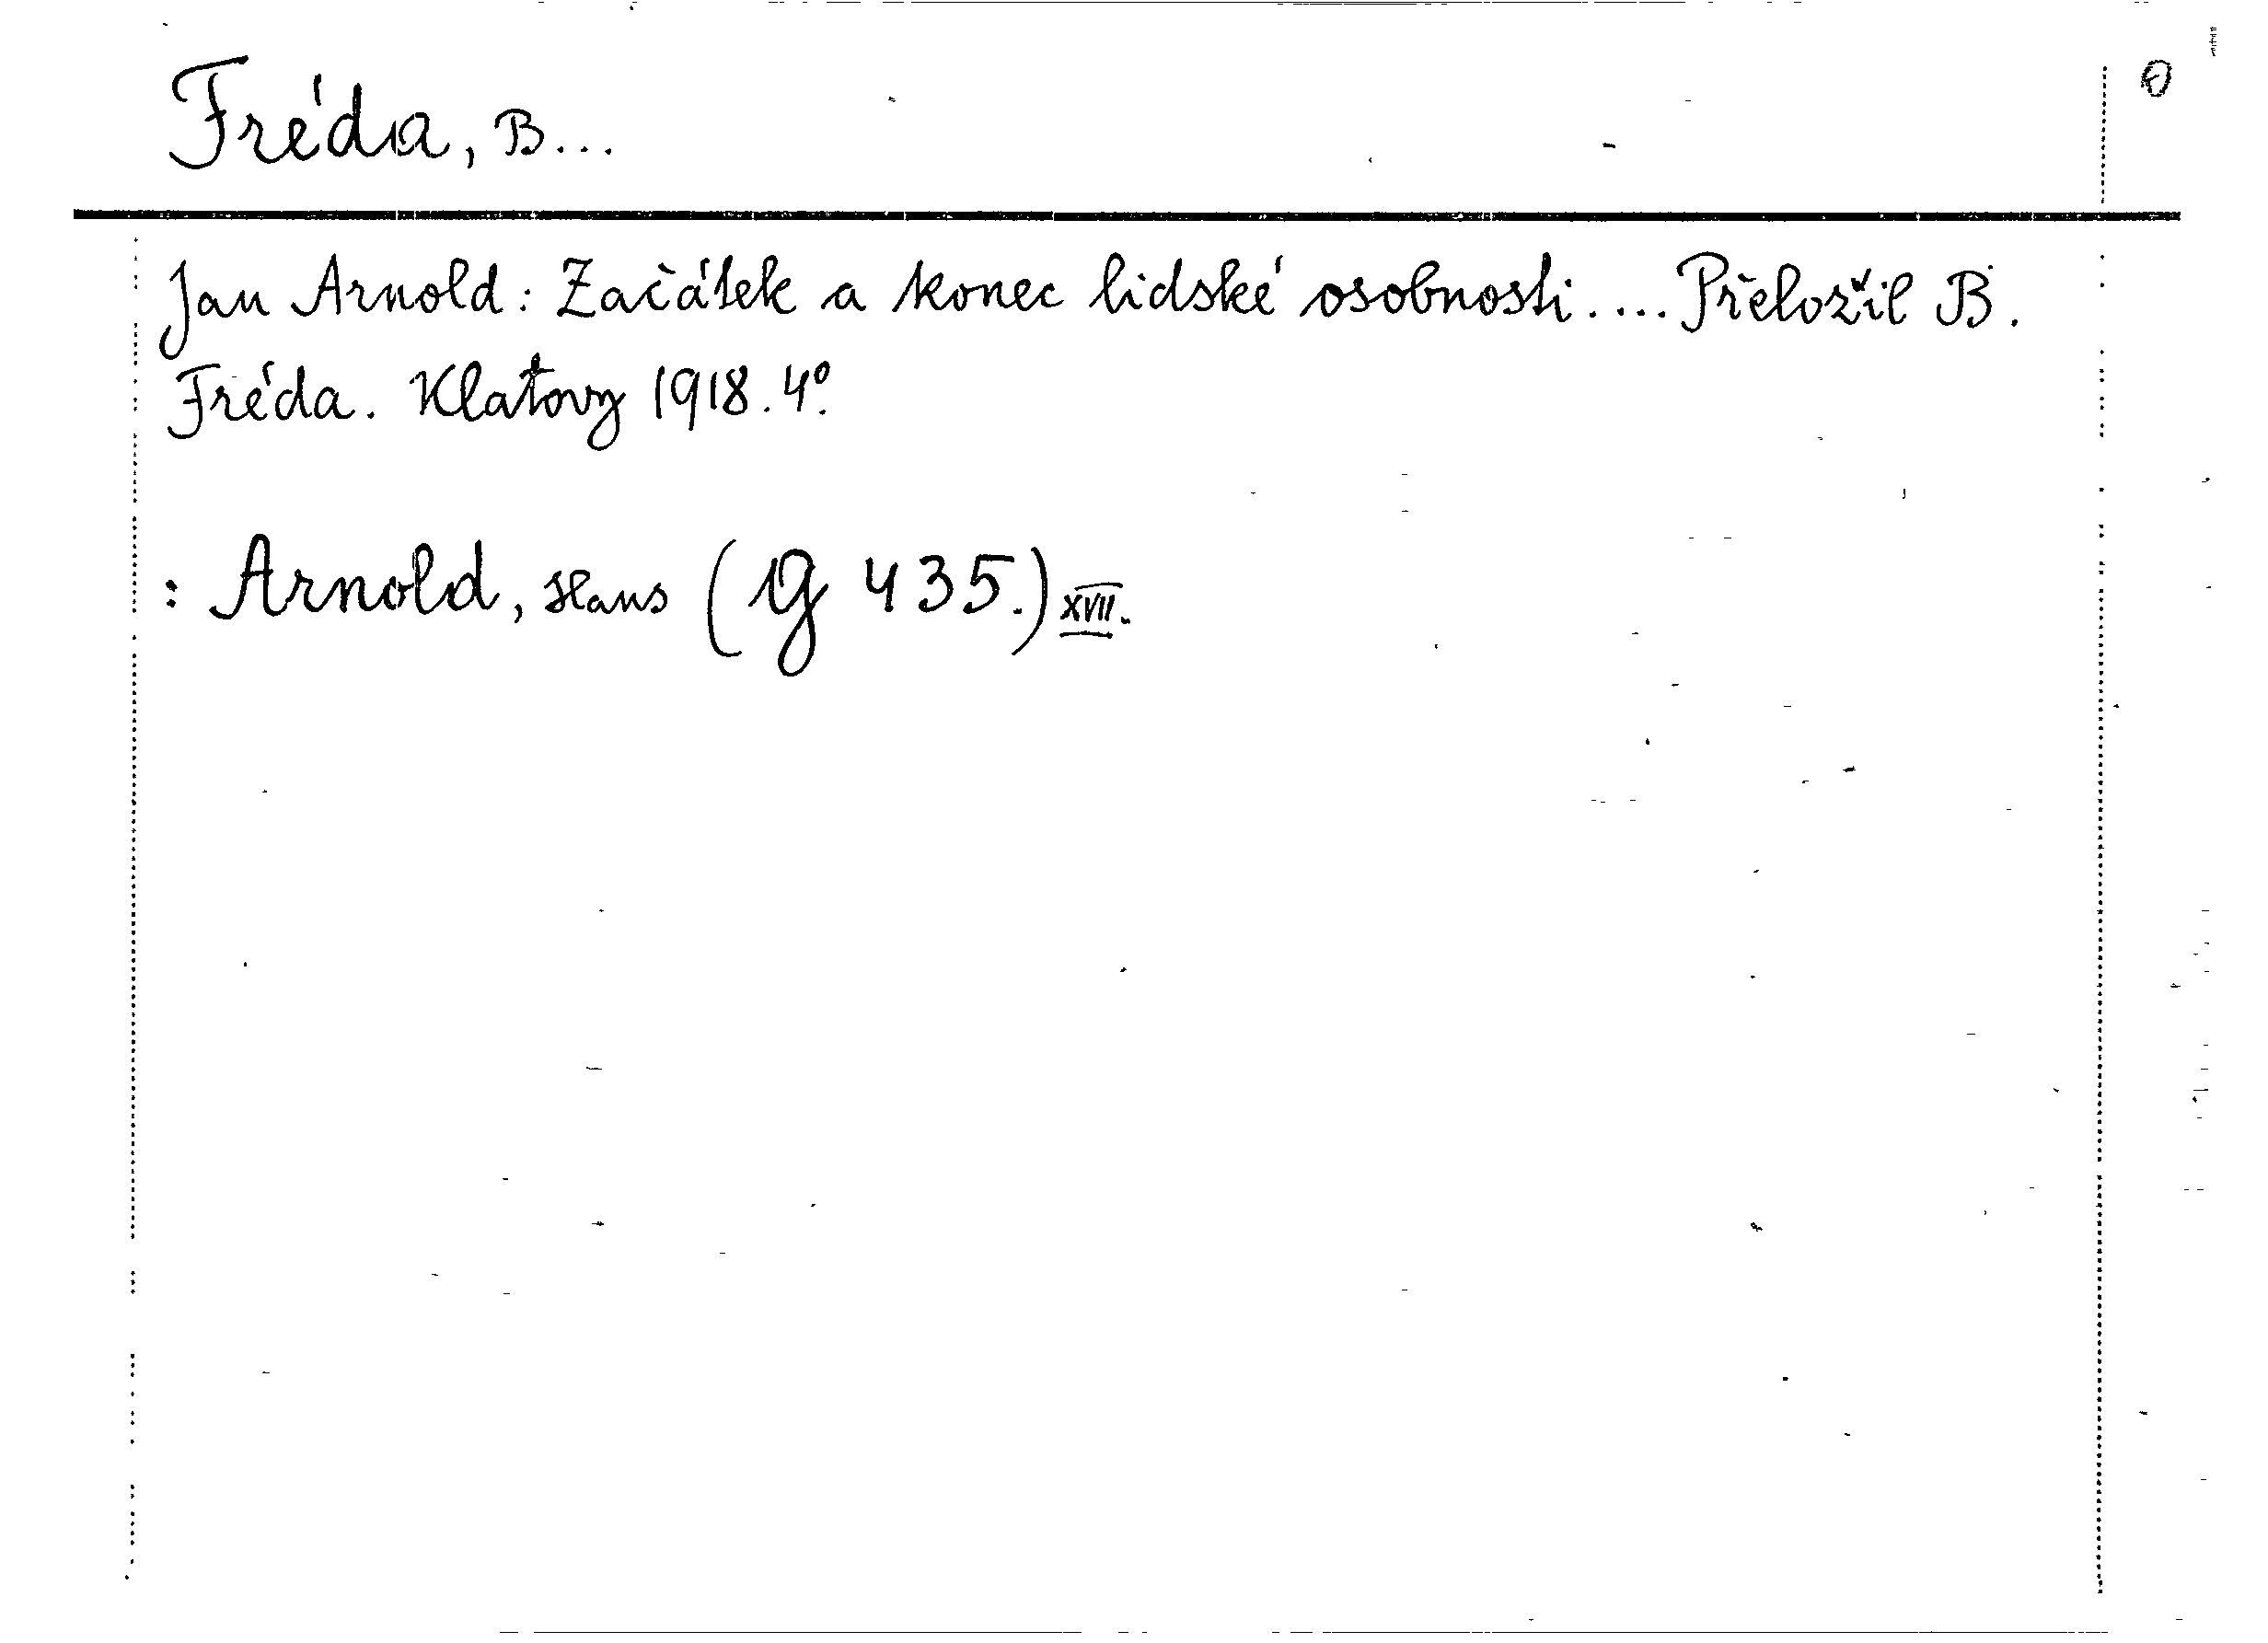 Fréda, B...
Jan Arnold: Začátek a konec lidské osobnosti.... Přeložil B.
Fréda. Klatovy 1918. 4°.
: Arnold, Hans (G 435.) XVII.